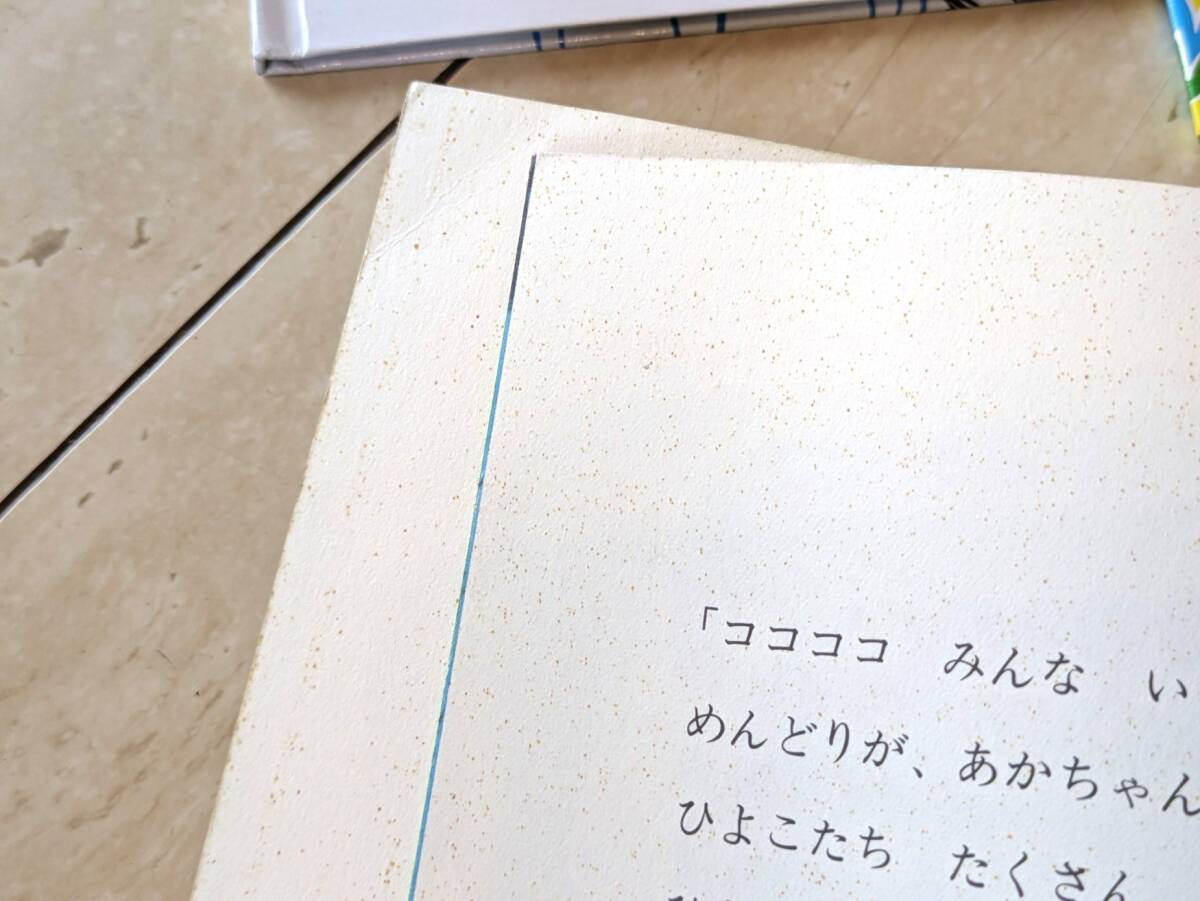 「ココココ　みんな　い
めんどりが、あかちゃん
ひよこたち　たくさん